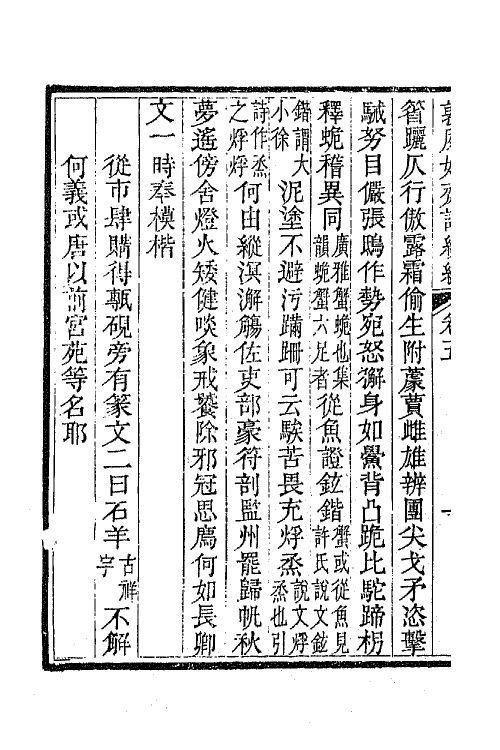 箵曬仄行傲露霜偷生附藁蕒雌雄辨團尖戈矛恣擊
馘努目儼張鴟作勢宛怒獬身如鱟背凸跪比駝蹄枴
釋蛫稽異同廣雅蟹蛫也集韻蛫蟹六足者從魚證鉉鍇蟹或從魚見許氏說文鉉
鍇謂大小徐泥塗不避污蹣跚可云騃苦畏充烰烝說文烰烝也引
詩作烝之烰烰何由縱溟澥觴佐吏部豪符剖監州罷歸帆秋
夢遙傍舍燈火矮健啖象戒饕除邪冠思廌何如長卿
文一時奉模楷
從市肆購得瓻硯旁有篆文二曰石羊古祥字不解
何義或唐以前宮苑等名耶